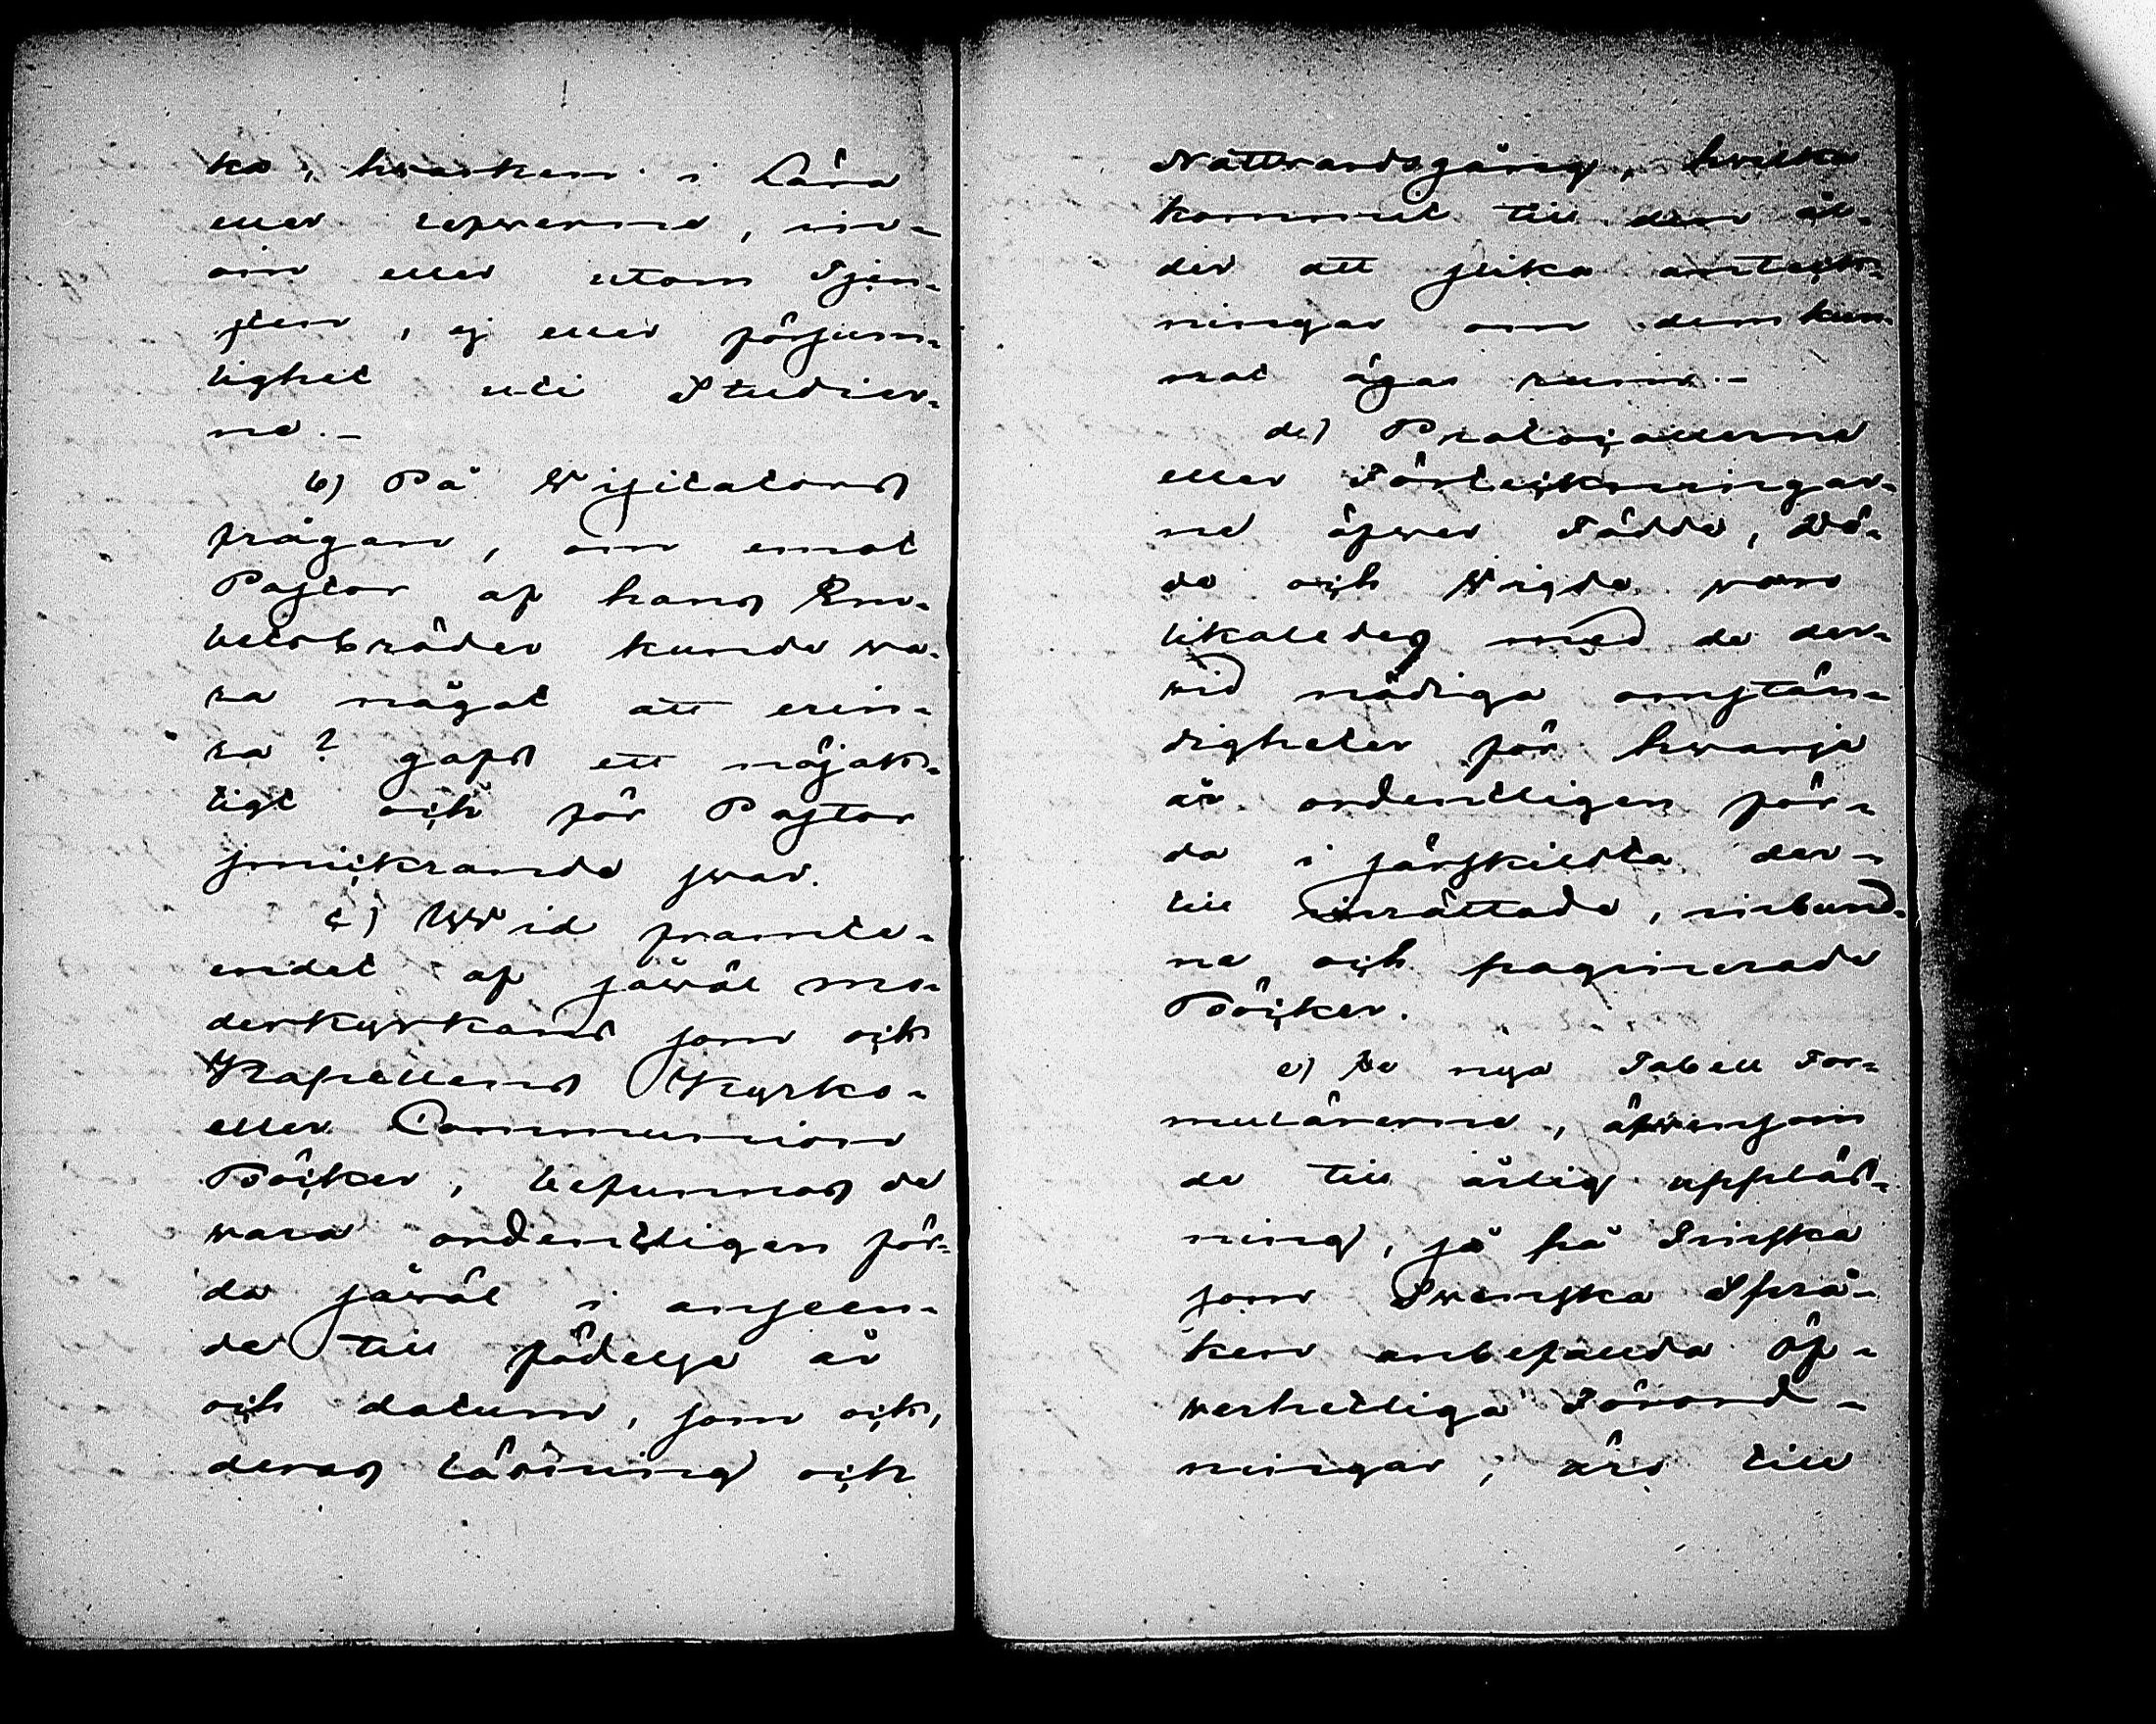 ka, hwarken i Lära
eller lefwerne, in-
om eller utom Tjen-
sten, ej eller försum-
lighet uti Studier-
na.-
b) På Wisitators
frågan, om emot
Pastor af hans Em-
betsbröder kunde wa-
ra något att erin-
ra? gafs ett nöjak-
tigt och för Pastor
smickrande swar.
c) Wid framte-
endet af såwäl mo-
derkyrkans som ock
Kapellens Kyrko-
eller Communion
Böcker, befunnos de
wara ordentligen för-
da såwäl i anseen-
de till födelse år
och datum, som ock,
deras läsning och
Nattwardsgång, hwilka
kommit till den ål-
der att slika anteck-
ningar om dem kun-
nat ägas rum.-
d) Protocollerne
eller Förteckningar-
ne öfwer Födde, Dö-
de och Wigde woro
likaledes med de der-
wid nödiga omstän-
digheter för hwarje
år ordentligen för-
da i särskildta der-
till inrättade, inbund-
na och paginerade
Böcker.
e) De nya Tabell For-
mulärerne, äfwensom
de till årlig uppläs-
ning, så på Finska
som Swenska Språ-
ken anbefallda Öf-
werhetliga Förord-
ningar, äro till